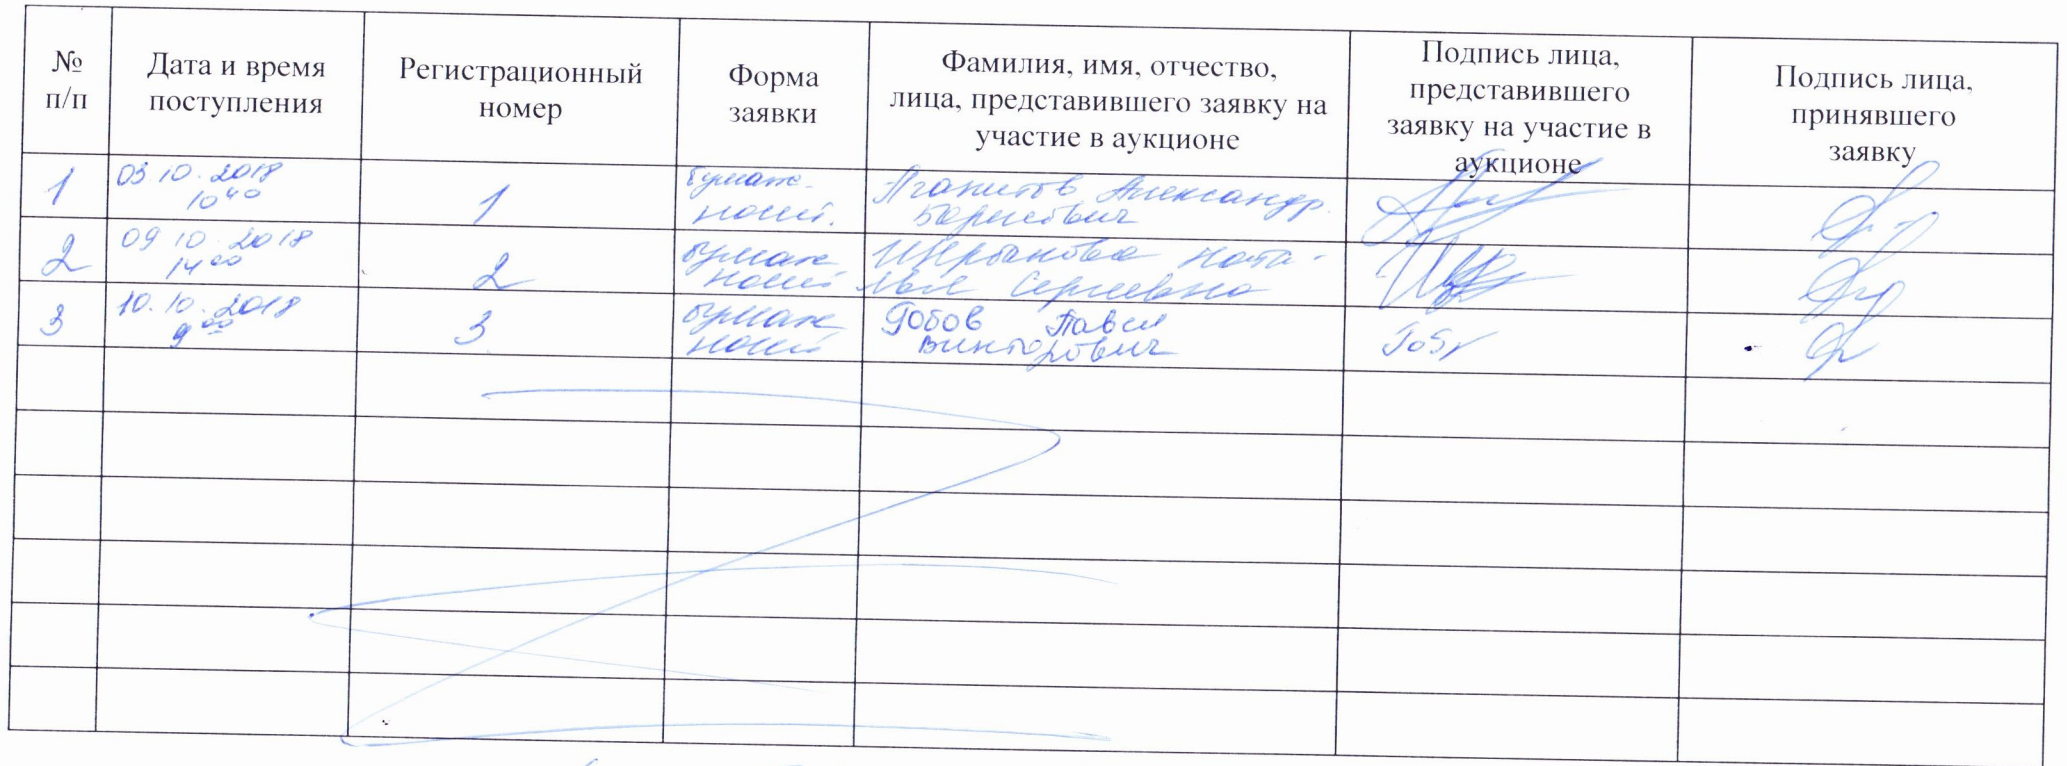 № п/п
Дата и время поступления
Регистрационный номер
Форма заявки
Фамилия, имя, отчество, лица, представившего заявку на участие в аукционе
Подпись лица, представившего заявку на участие в аукционе
Подпись лица, принявшего заявку
1
03 10. 2018
10 40
1
бумаж-
ной.
Александр
Борисович
2
09 10. 2018
14 00
2
бумаж
ной
Ната-
лья Сергеевна
3
10. 10. 2018
9 00
3
бумаж
ной
Гобов Павел
Викторович